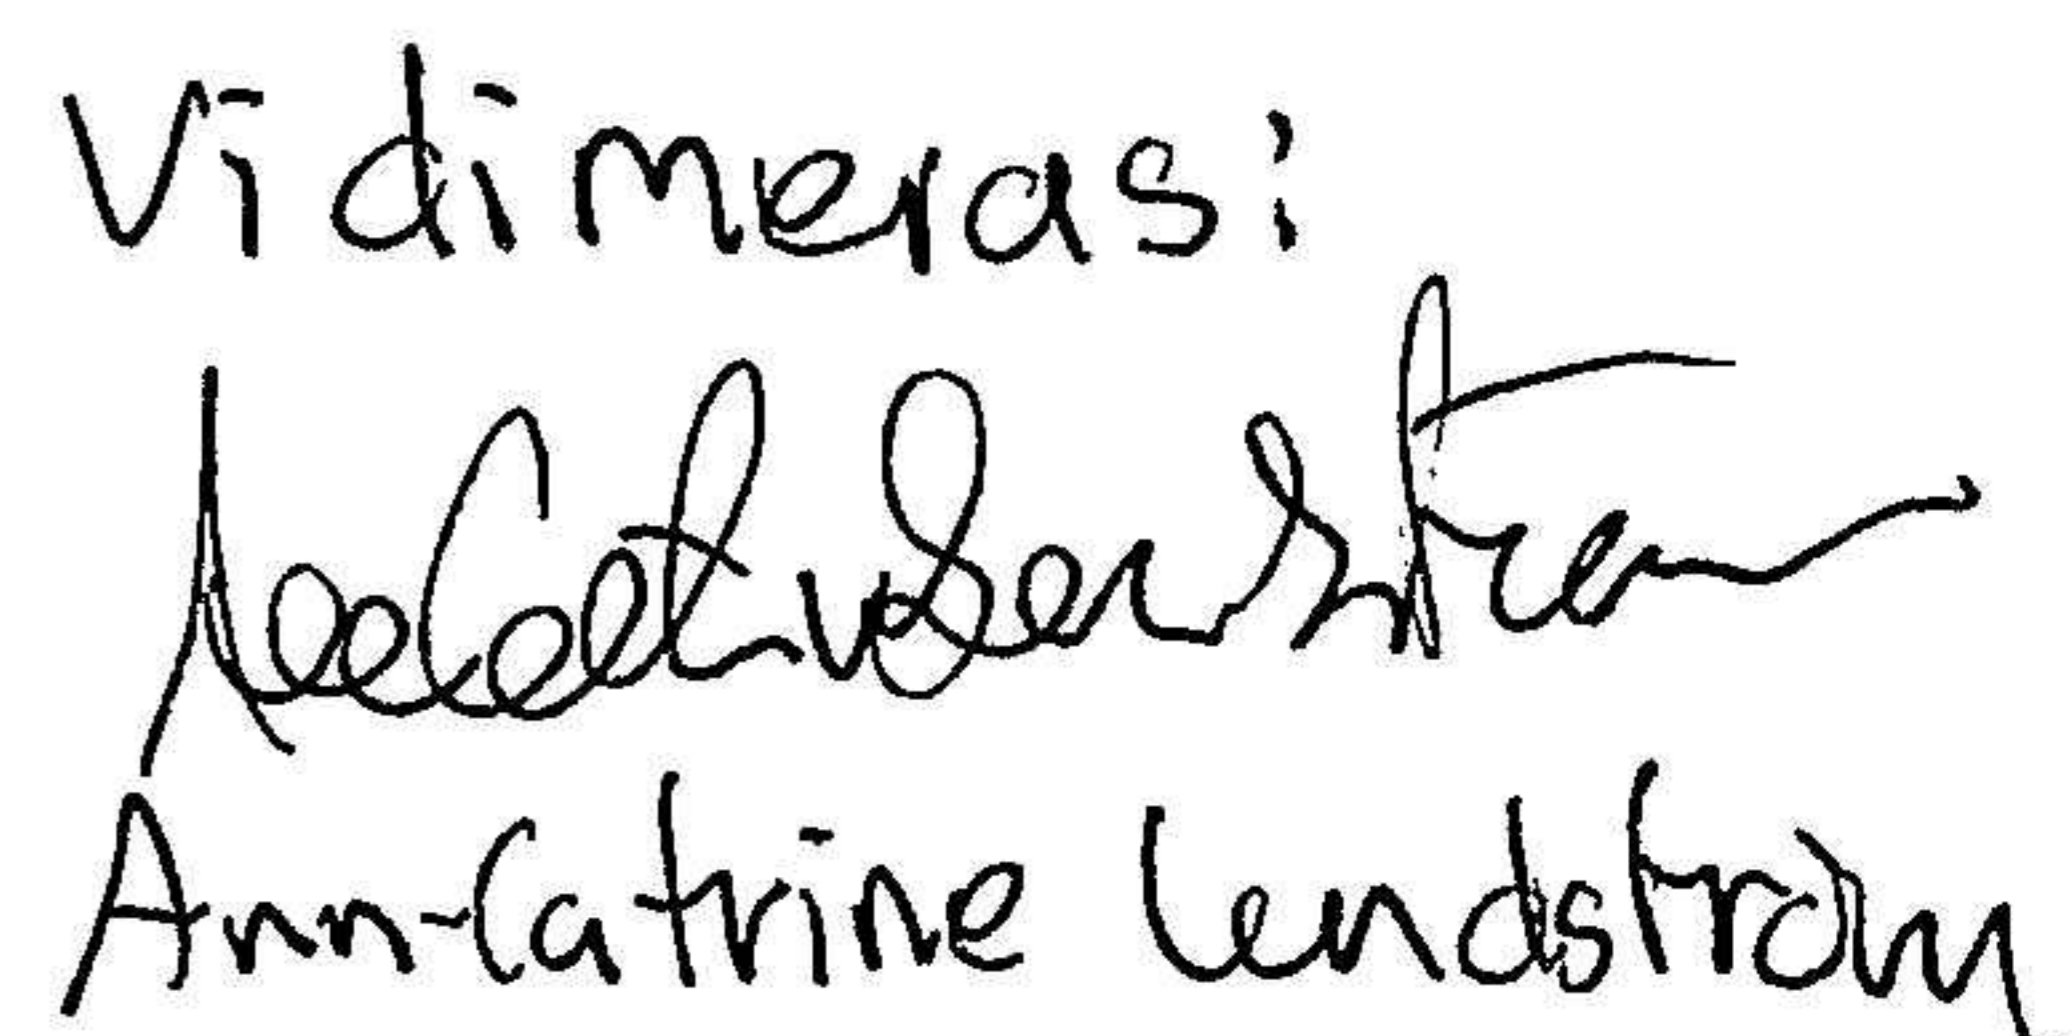 Vidimeras:
Ann-Catrine Lendström